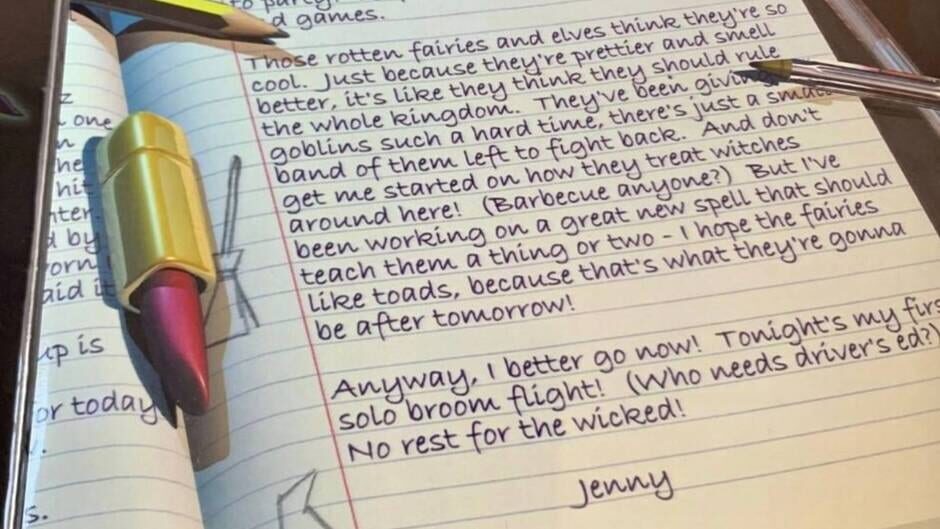 to party
d games.
Those rotten fairies and elves think they're so
cool. Just because they're prettier and smell
better, it's like they think they should rule
the whole kingdom. They've been givin
goblins such a hard time, there's just a small
band of them left to fight back. And don't
get me started on how they treat witches
around here! (Barbecue anyone?) But I've
been working on a great new spell that should
teach them a thing or two - I hope the fairies
like toads, because that's what they're gonna
be after tomorrow!
Anyway, I better go now! Tonight's my firs
solo broom flight! (Who needs driver's ed?)
No rest for the wicked!
Jenny
z
one
n
he
hit
nter.
d by
orn!
aid it
up is
or today
s.